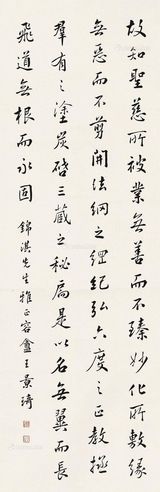 故知聖慈所被業無善而不臻妙化所敷緣
無惡而不剪開法網之綱紀弘六度之正教拯
羣有之塗炭啓三藏之秘扃是以名無翼而長
飛道無根而永固 錦淇先生雅正容盦王景琦